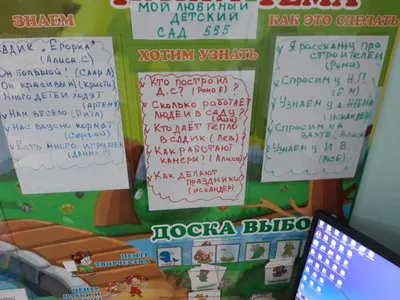 МОЙ ЛЮБИМЫЙ
ДЕТСКИЙ
САД 555
ЗНАЕМ
ХОТИМ УЗНАТЬ
КАК ЭТО СДЕЛАТЬ
САДИК "Егорка"
(Алиса.С)
Он большой!
Он красивый
Много детей ходят
(Артём)
Нам весело (Рита)
Нас вкусно кормят
(Сергей)
Есть много игрушек
Кто построил
Д.С? (Рома Е)
Сколько работает
людей в саду?
Кто даёт тепло
в садик (Лев)
Как работают
камеры? (Алиса)
Как делают
праздники
(Искандер)
Я расскажу про
строителей
(Рома)
Спросим у
Узнаем у
(Искандер)
Спросим на
вахте
Узнаем у И.В.
ДОСКА ВЫБО
ЦЕНТР
ТВОРЧЕСТВА
ЦЕНТР
НАУКИ И